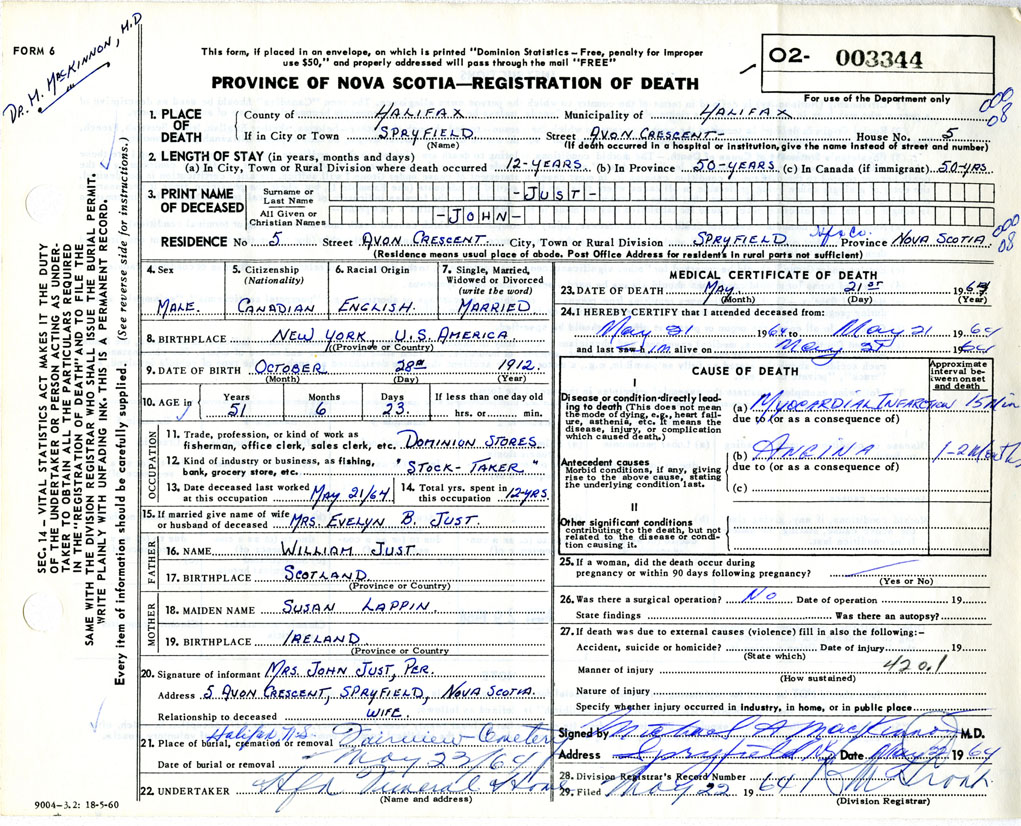 FORM 6
DR. M. MacKINNON, M.D
This form, if placed in an envelope, on which is printed "Dominion Statistics – Free, penalty for improper
use $50," and properly addressed will pass through the mail "FREE"
PROVINCE OF NOVA SCOTIA—REGISTRATION OF DEATH
02- 003344
For use of the Department only
000
08
SEC. 14 – VITAL STATISTICS ACT MAKES IT THE DUTY
OF THE UNDERTAKER OR PERSON ACTING AS UNDER-
TAKER TO OBTAIN ALL THE PARTICULARS REQUIRED
IN THE "REGISTRATION OF DEATH" AND TO FILE THE
SAME WITH THE DIVISION REGISTRAR WHO SHALL ISSUE THE BURIAL PERMIT.
WRITE PLAINLY WITH UNFADING INK. THIS IS A PERMANENT RECORD.
Every item of information should be carefully supplied. (See reverse side for instructions.)
1. PLACE OF DEATH
County of HALIFAX Municipality of HALIFAX
If in City or Town SPRYFIELD. Street AVON CRESCENT- House No. 5
(Name) (If death occurred in a hospital or institution, give the name instead of street and number)
2. LENGTH OF STAY (in years, months and days)
(a) In City, Town or Rural Division where death occurred 12-YEARS. (b) In Province 50-YEARS. (c) In Canada (if immigrant) 50-YRS.
3. PRINT NAME OF DECEASED
Surname or Last Name -JUST-
All Given or Christian Names -JOHN-
000
08
Hfx Co.
RESIDENCE No 5 Street AVON CRESCENT. City, Town or Rural Division SPRYFIELD Province NOVA SCOTIA.
(Residence means usual place of abode. Post Office Address for residents in rural parts not sufficient)
4. Sex
MALE.
5. Citizenship
(Nationality)
CANADIAN
6. Racial Origin
ENGLISH.
7. Single, Married,
Widowed or Divorced
(write the word)
MARRIED
8. BIRTHPLACE NEW YORK, U.S. AMERICA.
(Province or Country)
9. DATE OF BIRTH OCTOBER 28TH 1912.
(Month) (Day) (Year)
10. AGE in
Years Months Days If less than one day old
51 6 23. hrs. or min.
OCCUPATION
11. Trade, profession, or kind of work as
fisherman, office clerk, sales clerk, etc. DOMINION STORES
12. Kind of industry or business, as fishing,
bank, grocery store, etc. "STOCK-TAKER"
13. Date deceased last worked
at this occupation MAY 21/64
14. Total yrs. spent in
this occupation 12-YRS.
15. If married give name of wife
or husband of deceased MRS. EVELYN B. JUST.
FATHER
16. NAME WILLIAM JUST.
17. BIRTHPLACE SCOTLAND.
(Province or Country)
MOTHER
18. MAIDEN NAME SUSAN LAPPIN.
19. BIRTHPLACE IRELAND
(Province or Country)
20. Signature of informant MRS. JOHN JUST, PER.
Address 5 AVON CRESCENT, SPRYFIELD, NOVA SCOTIA.
Relationship to deceased WIFE.
21. Place of burial, cremation or removal Halifax N.S. Fairview Cemetery
Date of burial or removal May 23/64
22. UNDERTAKER Hfx Funeral Home
(Name and address)
9004-3.2: 18-5-60
MEDICAL CERTIFICATE OF DEATH
23. DATE OF DEATH MAY 21ST 1964
(Month) (Day) (Year)
24. I HEREBY CERTIFY that I attended deceased from:
May 21 1964 to May 21 1964
and last saw him alive on May 21 1964
CAUSE OF DEATH
Approximate
interval be-
tween onset
and death
I
Disease or condition directly lead-
ing to death (This does not mean
the mode of dying, e.g., heart fail-
ure, asthenia, etc. It means the
disease, injury, or complication
which caused death.)
(a) MYOCARDIAL INFARCTION 15 Min
due to (or as a consequence of)
Antecedent causes
Morbid conditions, if any, giving
rise to the above cause, stating
the underlying condition last.
(b) ANGINA 1-2 Months
due to (or as a consequence of)
(c)
II
Other significant conditions
contributing to the death, but not
related to the disease or condi-
tion causing it.
25. If a woman, did the death occur during
pregnancy or within 90 days following pregnancy?
(Yes or No)
26. Was there a surgical operation? No Date of operation 19
State findings Was there an autopsy?
27. If death was due to external causes (violence) fill in also the following:–
Accident, suicide or homicide? Date of injury 19
(State which)
Manner of injury 420.1
(How sustained)
Nature of injury
Specify whether injury occurred in industry, in home, or in public place
Signed by Michael A MacKinnon M.D.
Address Spryfield NS Date May 22 1964
28. Division Registrar's Record Number
29. Filed May 22 1964
(Division Registrar)